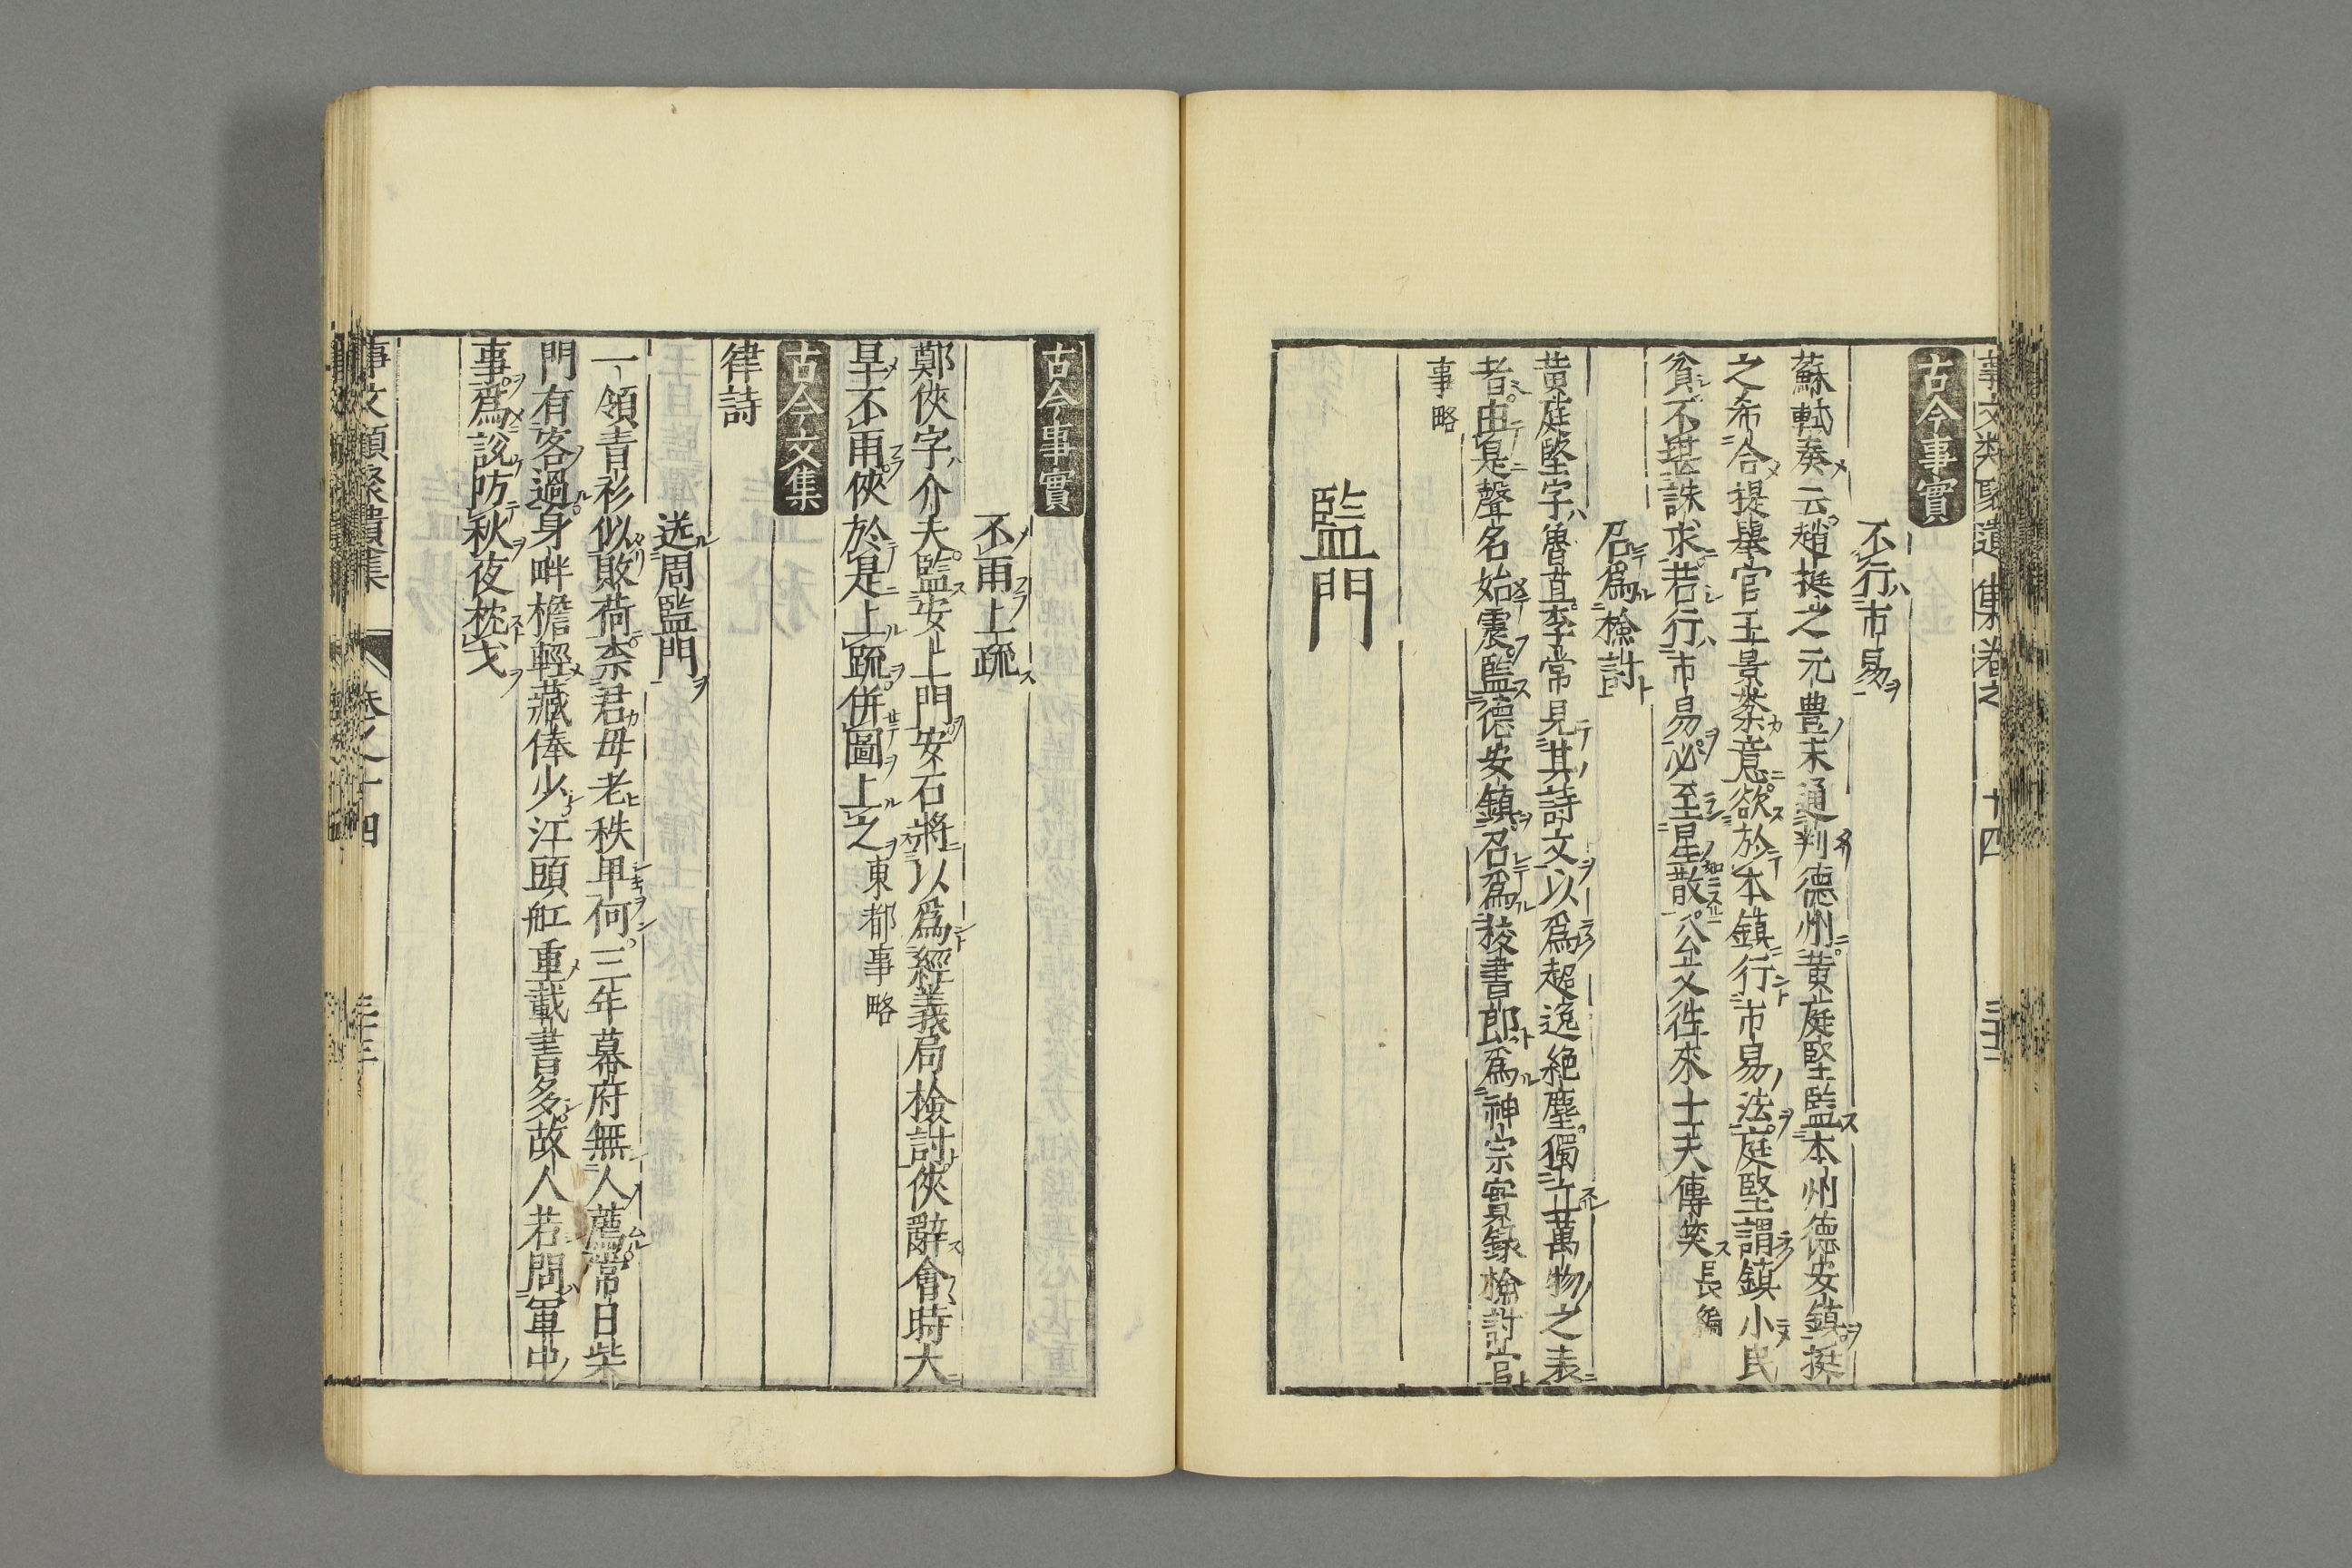 事文類聚遺集卷之十四
古今事實
不行市易
蘇軾奏云趙挺之元豊末通判德州黄庭堅監本州德安鎮挺
之希合提舉官王景棻意欲於本鎮行市易法庭堅謂鎮小民
貧不堪誅求若行市易必至星散公㕥文徃來士夫傳笑長編
召爲檢討
黄庭堅字魯直李常見其詩文以爲超逸絶塵獨立萬物之表
者由是聲名始震監德安鎮召爲校書郎爲神宗實録檢討官
事略
監門
古今事實
不雨上疏
鄭俠字介夫監安上門安石將以爲經義局檢討俠辭會時大
旱不雨俠於是上疏併圖上之東都事略
古今文集
律詩
送周監門
一領青衫似敗荷柰君母老秩卑何三年幕府無人薦常日柴
門有客過身畔檐輕藏俸少江頭舡重載書多故人若問軍中
事爲説防秋夜枕戈
事文類聚遺集 卷之十四